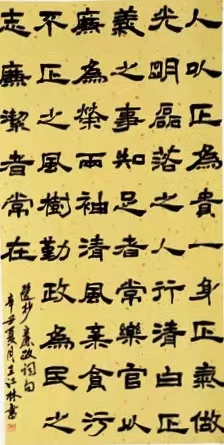 人以正為貴一身正氣做
光明磊落之人行清白正
義之事知足者常樂官以
廉為榮兩袖清風棄貪污
不正之風樹勤政為民之
志廉潔者常在
抄廉政詞句
辛丑夏月王江林書